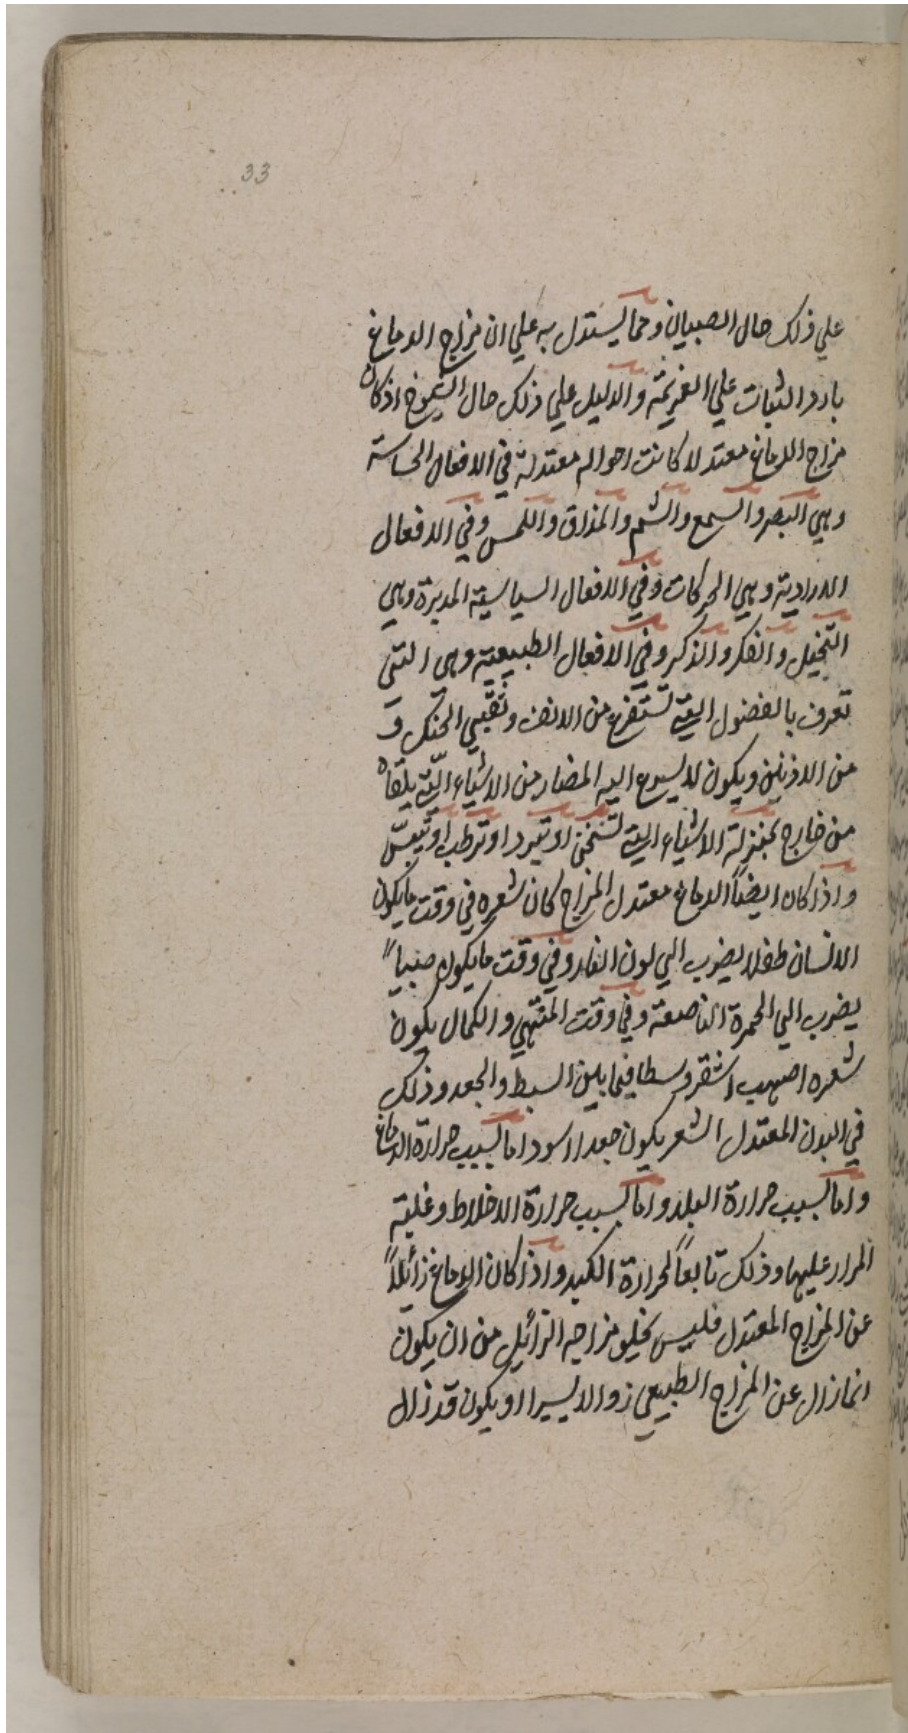 33
علي ذلك حال الصبيان ومما يستدل به علي ان مزاج الدماغ
بارد الثبات علي العزيمة والدليل علي ذلك حال الشيوخ اذ كان
مزاج الدماغ معتدلا كانت احواله معتدلة في الافعال الحساسة
وهي البصر والسمع والشم والمذاق واللمس وفي الافعال
الارادية وهي الحركات وفي الافعال السياسية المدبرة وهي
التخيل والفكر والذكر وفي الافعال الطبيعية وهى التي
تعرف بالفضول التي تستفرغ من الانف وثقبي الحنك و
من الاذنين ويكون لا يسرع اليه المضار من الاشياء التي يلقاه
من خارج بمنزلة الاشياء التي تسخن او تبرد او ترطب او تيبس
واذا كان ايضاً الدماغ معتدل المزاج كان شعره في وقت ما يكون
الانسان طفلا يضرب الي لون النار وفي وقت ما يكون صبياً
يضرب الي الحمرة الناصعة وفي وقت المنتهي والكمال يكون
شعره اصهب اشقر وسطا فيما بين السبط والجعد وذلك
في البدن المعتدل الشعر يكون جعدا اسود اما بسبب حرارة الدماغ
واما بسبب حرارة البلد واما بسبب حرارة الاخلاط وغلبة
المرار عليها وذلك تابعاً لحرارة الكبد واذا كان الدماغ زائلاً
عن المزاج المعتدل فليس يخلو مزاجه الزائل من ان يكون
انما زال عن المزاج الطبيعي زوالا يسيرا او يكون قد زال